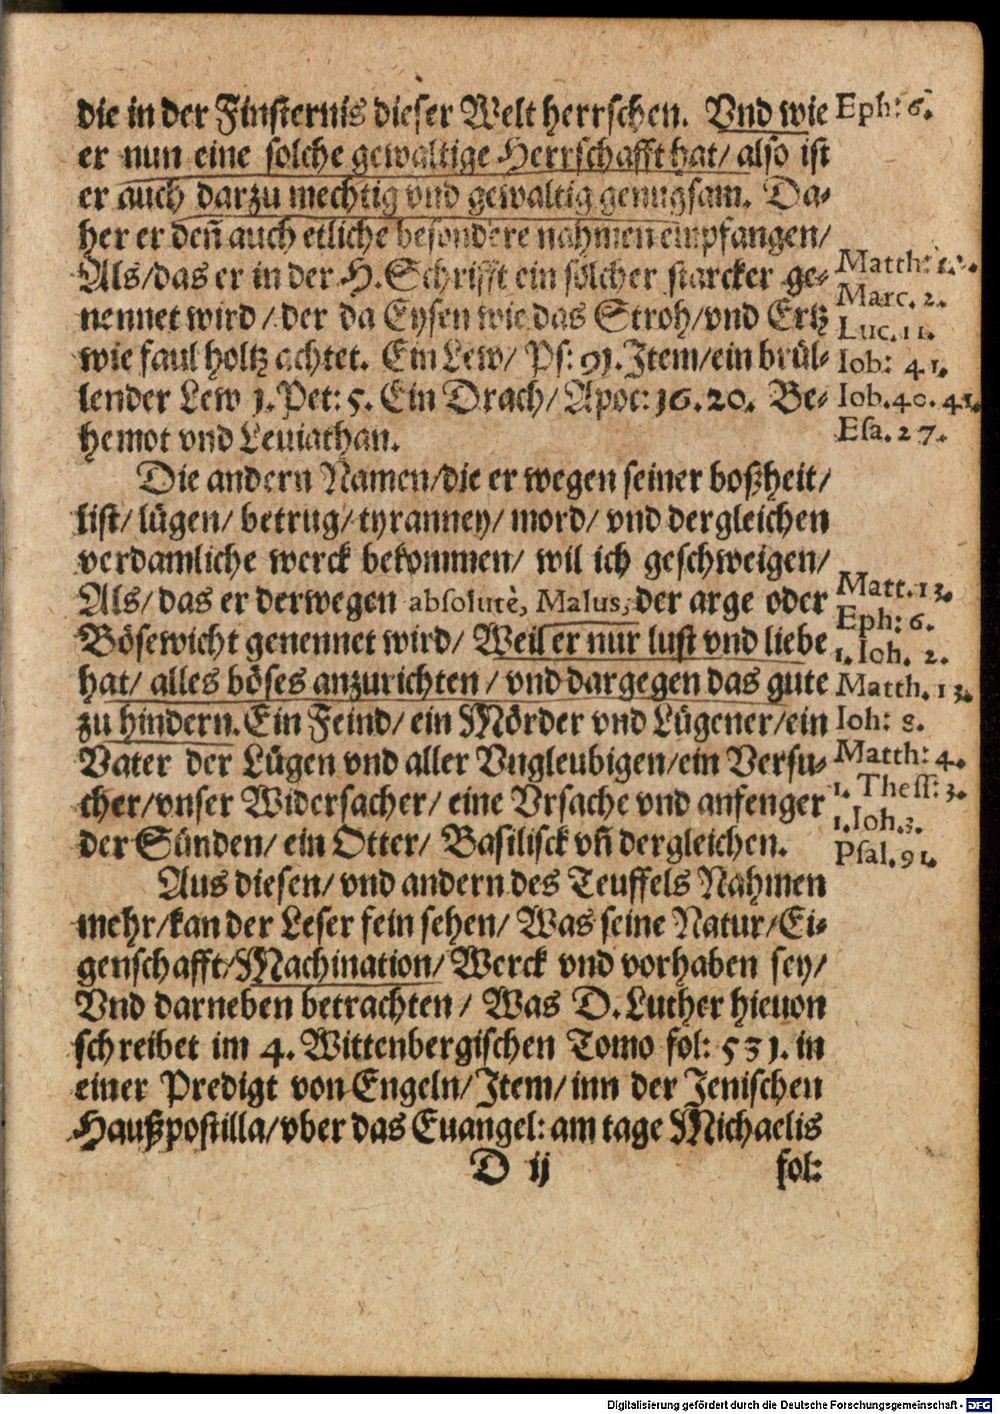 die in der Finsternis dieser Welt herrschen. Vnd wie
er nun eine solche gewaltige Herrschafft hat/ also ist
er auch darzu mechtig vnd gewaltig genugsam. Da-
her er deñ auch etliche besondere nahmen empfangen/
Als/das er in der H. Schrifft ein solcher starcker ge-
nennet wird/ der da Eysen wie das Stroh/vnd Ertz
wie faul holtz achtet. Ein Lew/ Ps: 91. Item/ein brül-
lender Lew 1. Pet: 5. Ein Drach/ Apoc: 16. 20. Be-
hemot vnd Leuiathan.
Eph: 6.
Matth: 12.
Marc. 2.
Luc. 11.
Iob: 41.
Iob. 40. 41.
Esa. 27.
Die andern Namen/die er wegen seiner boßheit/
list/ lügen/ betrug/ tyranney/ mord/ vnd dergleichen
verdamliche werck bekommen/ wil ich geschweigen/
Als/ das er derwegen absolutè, Malus, der arge oder
Bösewicht genennet wird/ Weil er nur lust vnd liebe
hat/ alles böses anzurichten/ vnd dargegen das gute
zu hindern. Ein Feind/ ein Mörder vnd Lügener/ein
Vater der Lügen vnd aller Vngleubigen/ein Versu-
cher/vnser Widersacher/ eine Vrsache vnd anfenger
der Sünden/ ein Otter/ Basilisck vñ dergleichen.
Matt. 13.
Eph: 6.
1. Ioh. 2.
Matth. 13.
Ioh: 8.
Matth: 4.
1. Thess: 3.
1. Ioh. 3.
Psal. 91.
Aus diesen/ vnd andern des Teuffels Nahmen
mehr/kan der Leser fein sehen/ Was seine Natur/Ei-
genschafft/Machination/ Werck vnd vorhaben sey/
Vnd darneben betrachten/ Was D. Luther hieuon
schreibet im 4. Wittenbergischen Tomo fol: 531. in
einer Predigt von Engeln/Item/inn der Jenischen
Haußpostilla/vber das Euangel: am tage Michaelis
D ij
fol:
Digitalisierung gefördert durch die Deutsche Forschungsgemeinschaft - DFG